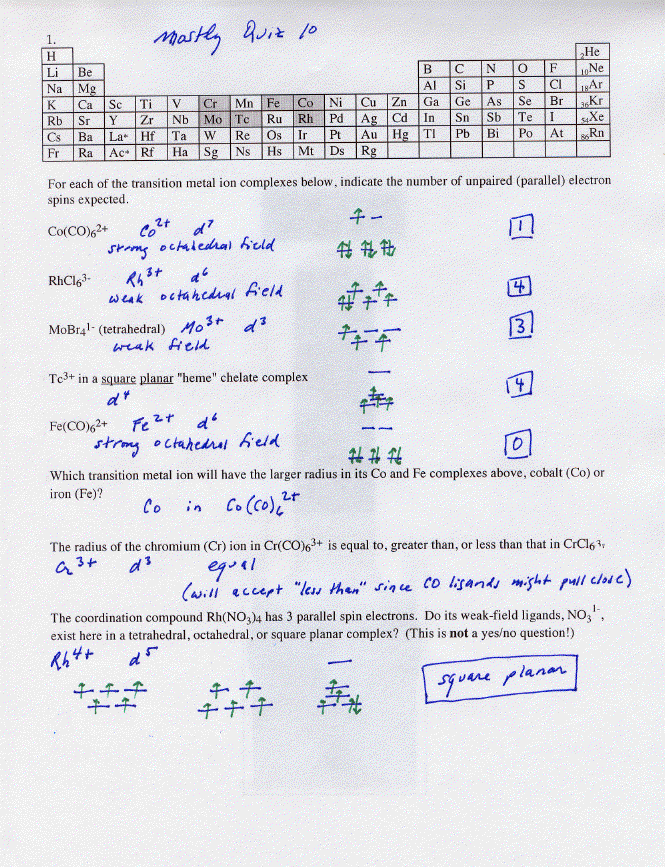 1. mostly Quiz 10
H 2He
Li Be B C N O F 10Ne
Na Mg Al Si P S Cl 18Ar
K Ca Sc Ti V Cr Mn Fe Co Ni Cu Zn Ga Ge As Se Br 36Kr
Rb Sr Y Zr Nb Mo Tc Ru Rh Pd Ag Cd In Sn Sb Te I 54Xe
Cs Ba La* Hf Ta W Re Os Ir Pt Au Hg Tl Pb Bi Po At 86Rn
Fr Ra Ac* Rf Ha Sg Ns Hs Mt Ds Rg
For each of the transition metal ion complexes below, indicate the number of unpaired (parallel) electron
spins expected.
Co(CO)6²⁺ Co²⁺ d⁷ 1
strong octahedral field
RhCl6³⁻ Rh³⁺ d⁶ 4
weak octahedral field
MoBr4¹⁻ (tetrahedral) Mo³⁺ d³ 3
weak field
Tc³⁺ in a square planar "heme" chelate complex 4
d⁴
Fe(CO)6²⁺ Fe²⁺ d⁶ 0
strong octahedral field
Which transition metal ion will have the larger radius in its Co and Fe complexes above, cobalt (Co) or
iron (Fe)?
Co in Co(CO)6²⁺
The radius of the chromium (Cr) ion in Cr(CO)6³⁺ is equal to, greater than, or less than that in CrCl6³⁻.
Cr³⁺ d³ equal
(will accept "less than" since CO ligands might pull close)
The coordination compound Rh(NO3)4 has 3 parallel spin electrons. Do its weak-field ligands, NO3¹⁻,
exist here in a tetrahedral, octahedral, or square planar complex? (This is not a yes/no question!)
Rh⁴⁺ d⁵
square planar